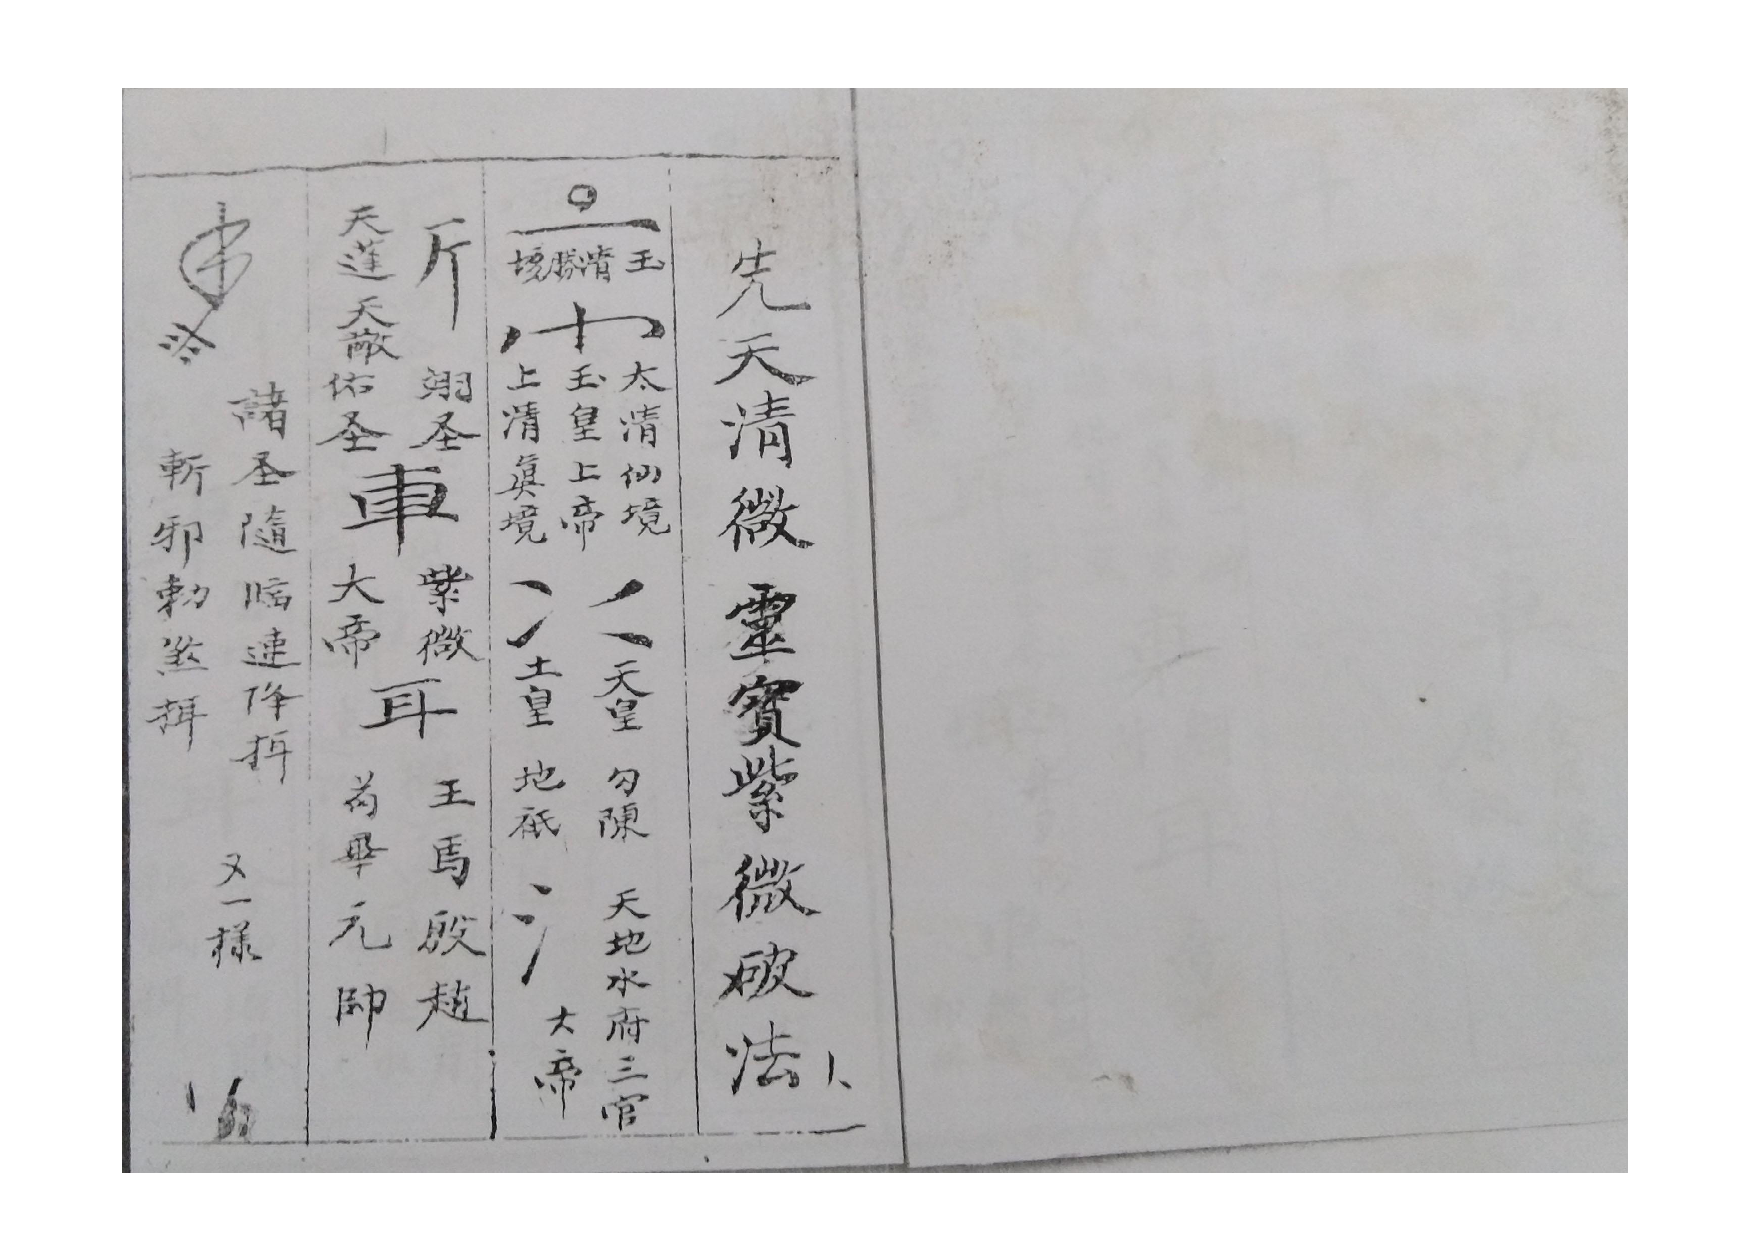 先天清微靈寶紫微破法
玉清勝境
太清仙境
玉皇上帝
上清真境
天皇 勾陳 天地水府三官
土皇 地祇 大帝
斤 翊圣 紫微 王馬殷趙
車
耳
天蓬天敵佑圣 大帝 苟畢元帥
諸圣隨臨速降 又一樣
斬邪勅煞